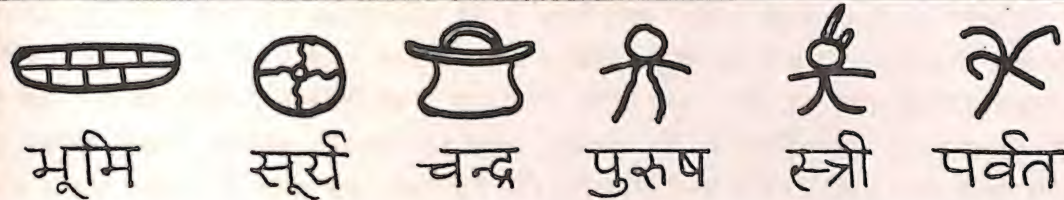 भूमि सूर्य चन्द्र पुरुष स्त्री पर्वत